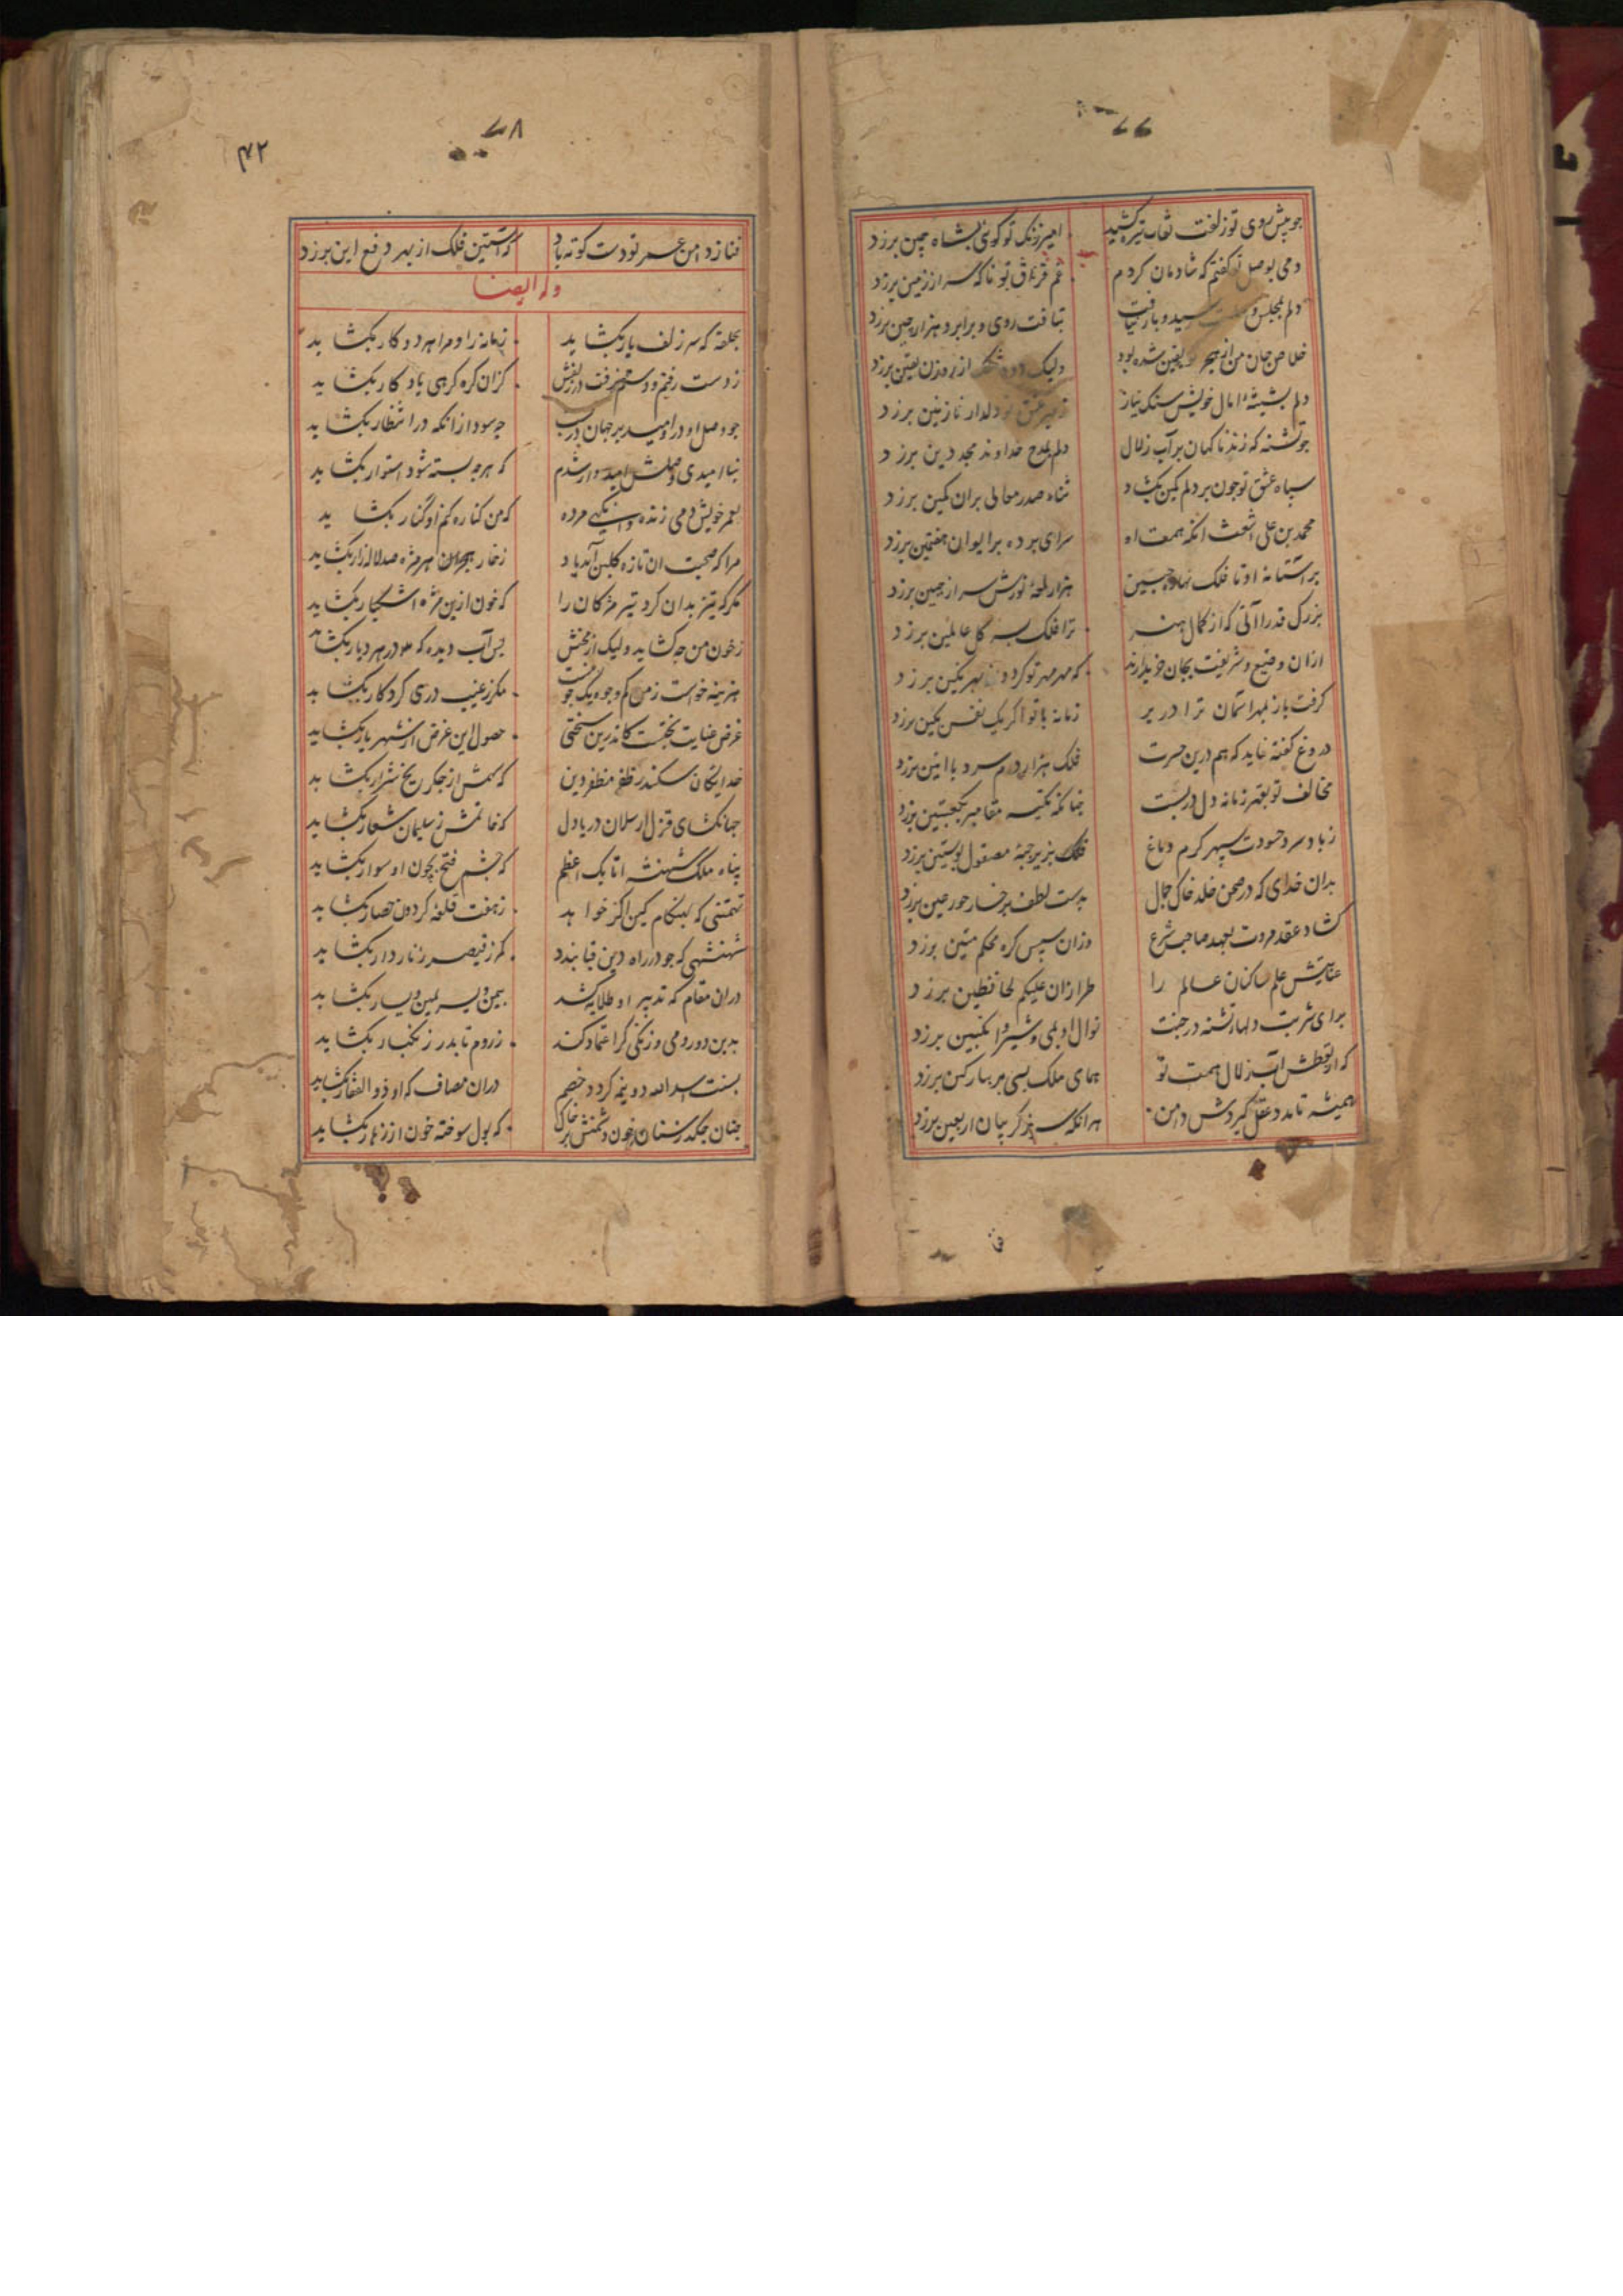 ۷۷
چو پیش روی تو زلفت نقاب تیره کشید امیر زنک تو کوئی بشاه چین برزد
دمی بوصل تو کفتم که شادمان کردم غم فراق تو ناکه سر از زمین برزد
دلم بمجلس رسید و بار نیافت نتافت روی و برابر و هزار چین برزد
خلاص جان من از هجر یقین شده بود ولیک از ره یقین برزد
دلم بشیشه امال خویش سنک نیاز عشق تو دلدار نازنین برزد
چو تشنه که زند ناکهان بر آب زلال دلم بمدح خداوند مجد دین برزد
سپاه عشق تو چون بر دلم کمین بکشاد ثناء صدر معالی بران کمین برزد
محمد بن علی اشعث انکه همت او سرای پرده بر ایوان هفتمین برزد
بر آستانه او تا فلک نهاد جبین هزار لمعه نورش سر از جبین برزد
بزرک قدرا آنی که از کمال هنر ترا فلک بسر کل عالمین برزد
ازان وضیع و شریفت بجان خریدارند که مهر مهر تو کردون بهر نکین برزد
کرفت باز بمهر اسمان ترا در بر زمانه با تو اکر یک نفس بکین برزد
دروغ کفته نیاید که هم درین حسرت فلک هزار دم سرد با انین برزد
مخالف تو بقهر زمانه دل در بست چنانکه تکیه مقامر بکعبتین برزد
زباد سرد حسودت سپهر کرم دماغ فلک بزیر جبه مصقول پوستین برزد
بدان خدای که در صحن خلد خاک جمال بدست لطف بر رخسار حور عین برزد
کشاد عقد مروت بعهد صاحب شرع وزان سپس کره محکم متین برزد
عنایتش علم ساکنان عالم را طراز ان علیکم لحافظین برزد
برای شربت دلهاء تشنه در جنت نوال او بمی و شیر و انکبین برزد
که از تعطش آب زلال همت تو همای ملک بسی پر بهار کین برزد
همیشه تا مدد عقل کیردش دامن هر انکه سر ز کریبان اربعین برزد
۷۸
۴۲
فنا ز دامن عمر تو دست کوته باد که آستین فلک از بهر دفع این برزد
وله ایضا
بحلقه که سر زلف یار بکشاید زمانه را و مرا هر دو کار بکشاید
ز دست رفتم و دستم نرفت در زلفش کزان کره کرهی یادکار بکشاید
چو وصل او در امید بر جهان در بست چه سود ازانکه در انتظار بکشاید
بنا امیدی وصلش امیدوار شدم که هرچه بسته شود استوار بکشاید
بعمر خویش دمی زنده وانکهی مرده که من کناره کنم او کنار بکشاید
مرا که صحبت ان تازه کلبن آمد یاد ز خار هجران هر مژه صد لاله زار بکشاید
مکر که تیز بدان کرد تیر مژکان را که خون ازین مژه اشکبار بکشاید
ز خون من چه کشاید ولیک از مخنش بس آب دیده که در هر دیار بکشاید
هزینه خواست ز من کم وجوه یک جو نیست مکر ز غیب دری کردکار بکشاید
غرض عنایت بختست کاندرین سختی حصول این غرض از شهریار بکشاید
خدایکان سکندر ظفر مظفر دین که سهمش از جکر یخ شرار بکشاید
جهانکشای قزل ارسلان دریا دل که خاتمش ز سلیمان شعار بکشاید
پناه ملک شهنشه اتابک اعظم که چشم فتح بچون او سوار بکشاید
تهمتنی که بهنکام کین اکر خواهد ز هفت قلعه کردون حصار بکشاید
شهنشهی که چو در راه دین قبا بندد کمر ز قیصر زنار دار بکشاید
دران مقام که تدبیر او طلایه کشد بیمن و یسر یمین و یسار بکشاید
بدین دو رومی و زنکی کر اعتماد کند ز روم تا بدر زنکبار بکشاید
بسنت اسد الله دو نیمه کردد خصم دران مصاف که او ذوالفقار بکشاید
چنان چکد ز سنان خون دشمنش بر خاک که بول سوخته خون از زهار بکشاید